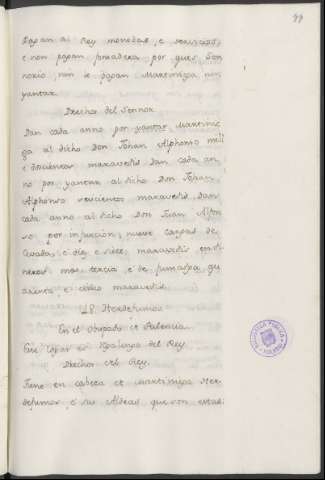 99
Pagan al Rey monedas, e servicios,
e non pagan fonsadera por que es Son
noxio, nin le pagan Martiniega nin
yantar.
Derechos del Sennor.
Dan cada anno por yantar, Martinie
ga al dicho Don Johan Alphonso mill
e doscientos maravedis Dan cada an
no por yantar al dicho Don Johan
Alphonso seiscientos maravedis Dan
cada anno al dicho Don Juan Alfon
so por infurcion, nueve cargas de
Cevada, e diez e siete maravedis
mas tercia e de fumazga qu
arenta e cinco maravedis.
18. Herdefumos
En el Obispado de Palencia.
Este logar es Abadengo del Rey
Derechos del Rey.
Tiene en cabeza de martiniega Her
defumos e sus Aldeas que son estas:
BIBLIOTECA PUBLICA
TOLEDO